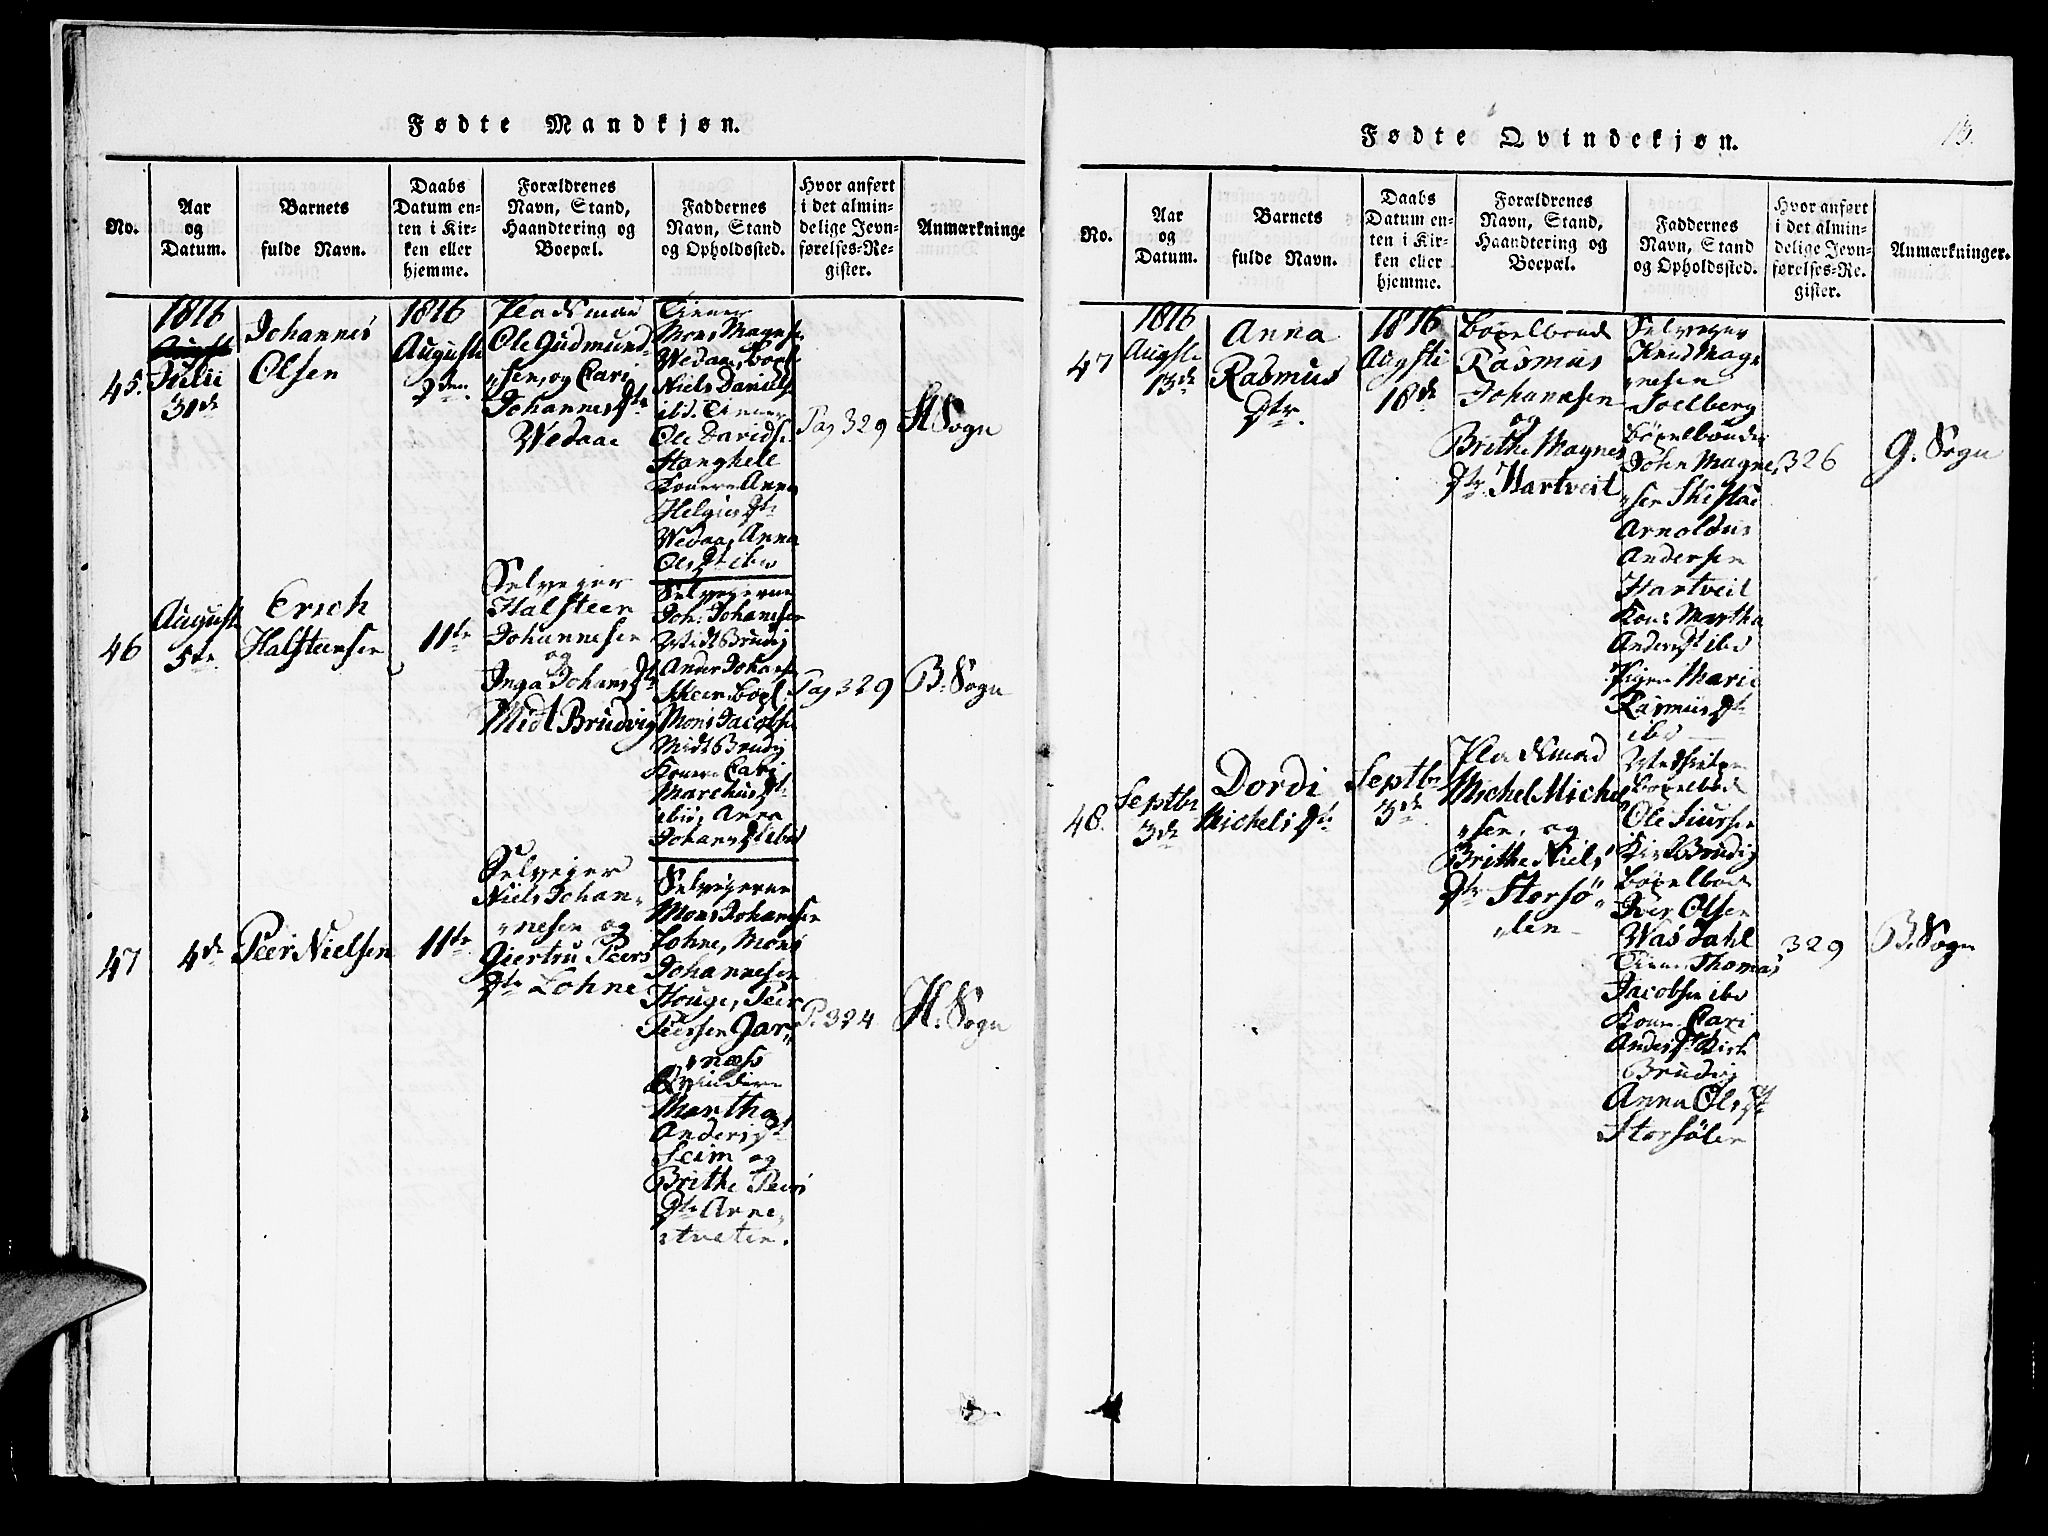 Fødte Mandkjøn.
No.
Aar
og
Datum.
Barnets
fulde Navn.
Daabs
Datum en-
ten i Kir-
ken eller
hjemme.
Forældrenes
Navn, Stand,
Haandtering og
Boepæl.
Faddernes
Navn, Stand
og Opholdssted.
Hvor anført
i det almin-
delige Jevn-
førelses-Re-
gister.
Anmærkninge
45.
1816
Julii
31de
Johannes
Olsen
1816
Augusti
Pladsmand
Ole Gudmund-
sen, og Cari
Johannes Dtr
Wedaae
Tiener
Mons Magnes
Wedaae, Bøxl
Niels Daniels
ibd. Tiener
Ole Davidse
Hanghell
Konerne Anna
Helgies Dtr
Wedaae, Anna
Ols Dtr ibd
Pag 329
H Sogn
46
August
5te
Erich
Halsteensen
11te
Selveier
Halsteen
Johannesen
og
Inga Johans Dtr
Midt Brudvig
Selveierne
Joh: Johanesen
Midt Brudvig
Ander Johanse
Skeie Bøxl
Mons Jacobse
Midt Brudvig
Konen Cari
Marchus Dtr
ibid Anna
Johans Dt ibd
Pag 329
B. Sogn
47
4de
Peer Nielsen
11te
Selveier
Niels Johan-
nesen og
Giertru Peers
Dtr Lohne
Selveierne
Mons Johannesen
Lohne, Mons
Johannesen
Houge, Peer
Peersen Gar-
næss
Qvindene
Martha
Anders Dt
Seim og
Brithe Peers
Dtr Arne-
tveten.
P. 324
H. Sogn
Fødte Qvindekjøn.
13.
No.
Aar
og
Datum.
Barnets
fulde Navn.
Daabs
Datum en-
ten i Kir-
ken eller
hjemme.
Forældrenes
Navn, Stand,
Haandtering og
Boepæl.
Faddernes
Navn, Stand
og Opholdssted.
Hvor anført
i det almin-
delige Jevn-
førelses-Re-
gister.
Anmærkninger.
47
1816
Augsti
13de
Anna
Rasmus
Dtr.
1816
Augsti
18de
Bøxelbonde
Rasmus
Johanesen
og
Brithe Magnes
Dtr. Hartveit
Selveier
Knud Mag-
nesen
Solberg
Bøxelbonde
John Magne-
sen Skistad
Arnoldus
Andersen
Hartveit
Kone Martha
Anders Dt ibd
Pigen Marie
Rasmus Dtr
ibd
326
G. Sogn
48.
Septbr
3de
Dordi
Michels Dtr
Septbr
3de
Pladsmand
Michel Miche
sen, og
Brithe Niels
Dtr Storsø-
len
Bøxelbonde
Ole Siursen
Kirk Brudvig
Bøxelbonde
Iver Olsen
Wasdahl
Tiener Thomas
Jacobsen ibd
Kone Cari
Anders Dt Kirk
Brudvig
Anna Ols Dt
Storsølen
329
B. Sogn